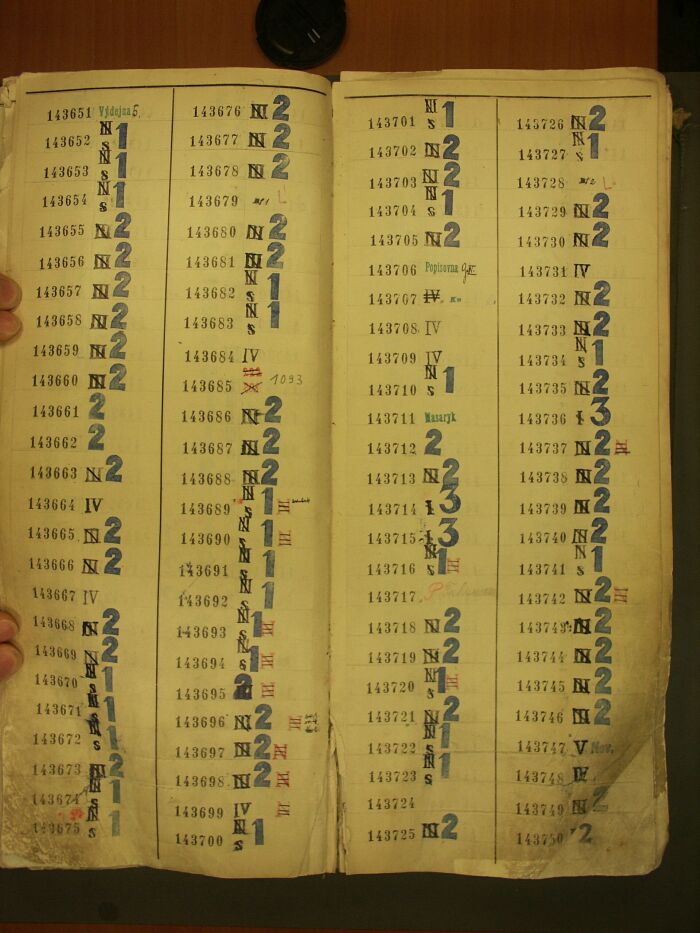 143651 Výdejna 5.
143652 N s 1
143653 N s 1
143654 N s 1
143655 N 2
143656 N 2
143657 N 2
143658 N 2
143659 N 2
143660 N 2
143661 2
143662 2
143663 N 2
143664 IV
143665 N 2
143666 N 2
143667 IV
143668 N 2
143669 N 2
143670 N s 1
143671 N s 1
143672 N s 1
143673 N 2
143674 N s 1
143675 N s 1
143676 N 2
143677 N 2
143678 N 2
143679
143680 N 2
143681 N 2
143682 N s 1
143683 N s 1
143684 IV
143685 1093
143686 N 2
143687 N 2
143688 N 2
143689 N s 1 III
143690 N s 1 III
143691 N s 1
143692 N s 1
143693 N s 1 III
143694 N s 1 III
143695 2 III
143696 N 2 III
143697 N 2 III
143698 N 2 III
143699 IV III
143700 N s 1
143701 N s 1
143702 N 2
143703 N 2
143704 N s 1
143705 N 2
143706 Popisovna
143707 IV
143708 IV
143709 IV
143710 N s 1
143711 Masaryk
143712 2
143713 N 2
143714 1 3
143715 1 3
143716 N s 1 III
143717 P
143718 N 2
143719 N 2
143720 N s 1 III
143721 N 2
143722 N s 1
143723 N s 1
143724
143725 N 2
145726 N 2
143727 N s 1
143728
143729 N 2
143730 N 2
143731 IV
143732 N 2
143733 N 2
143734 N s 1
143735 N 2
143736 1 3
143737 N 2 III
143738 N 2
143739 N 2
143740 N 2
143741 N s 1
143742 N 2 III
143743 N 2
143744 N 2
143745 N 2
143746 N 2
143747 V Nov.
143748 IV
143749 N 2
143750 2